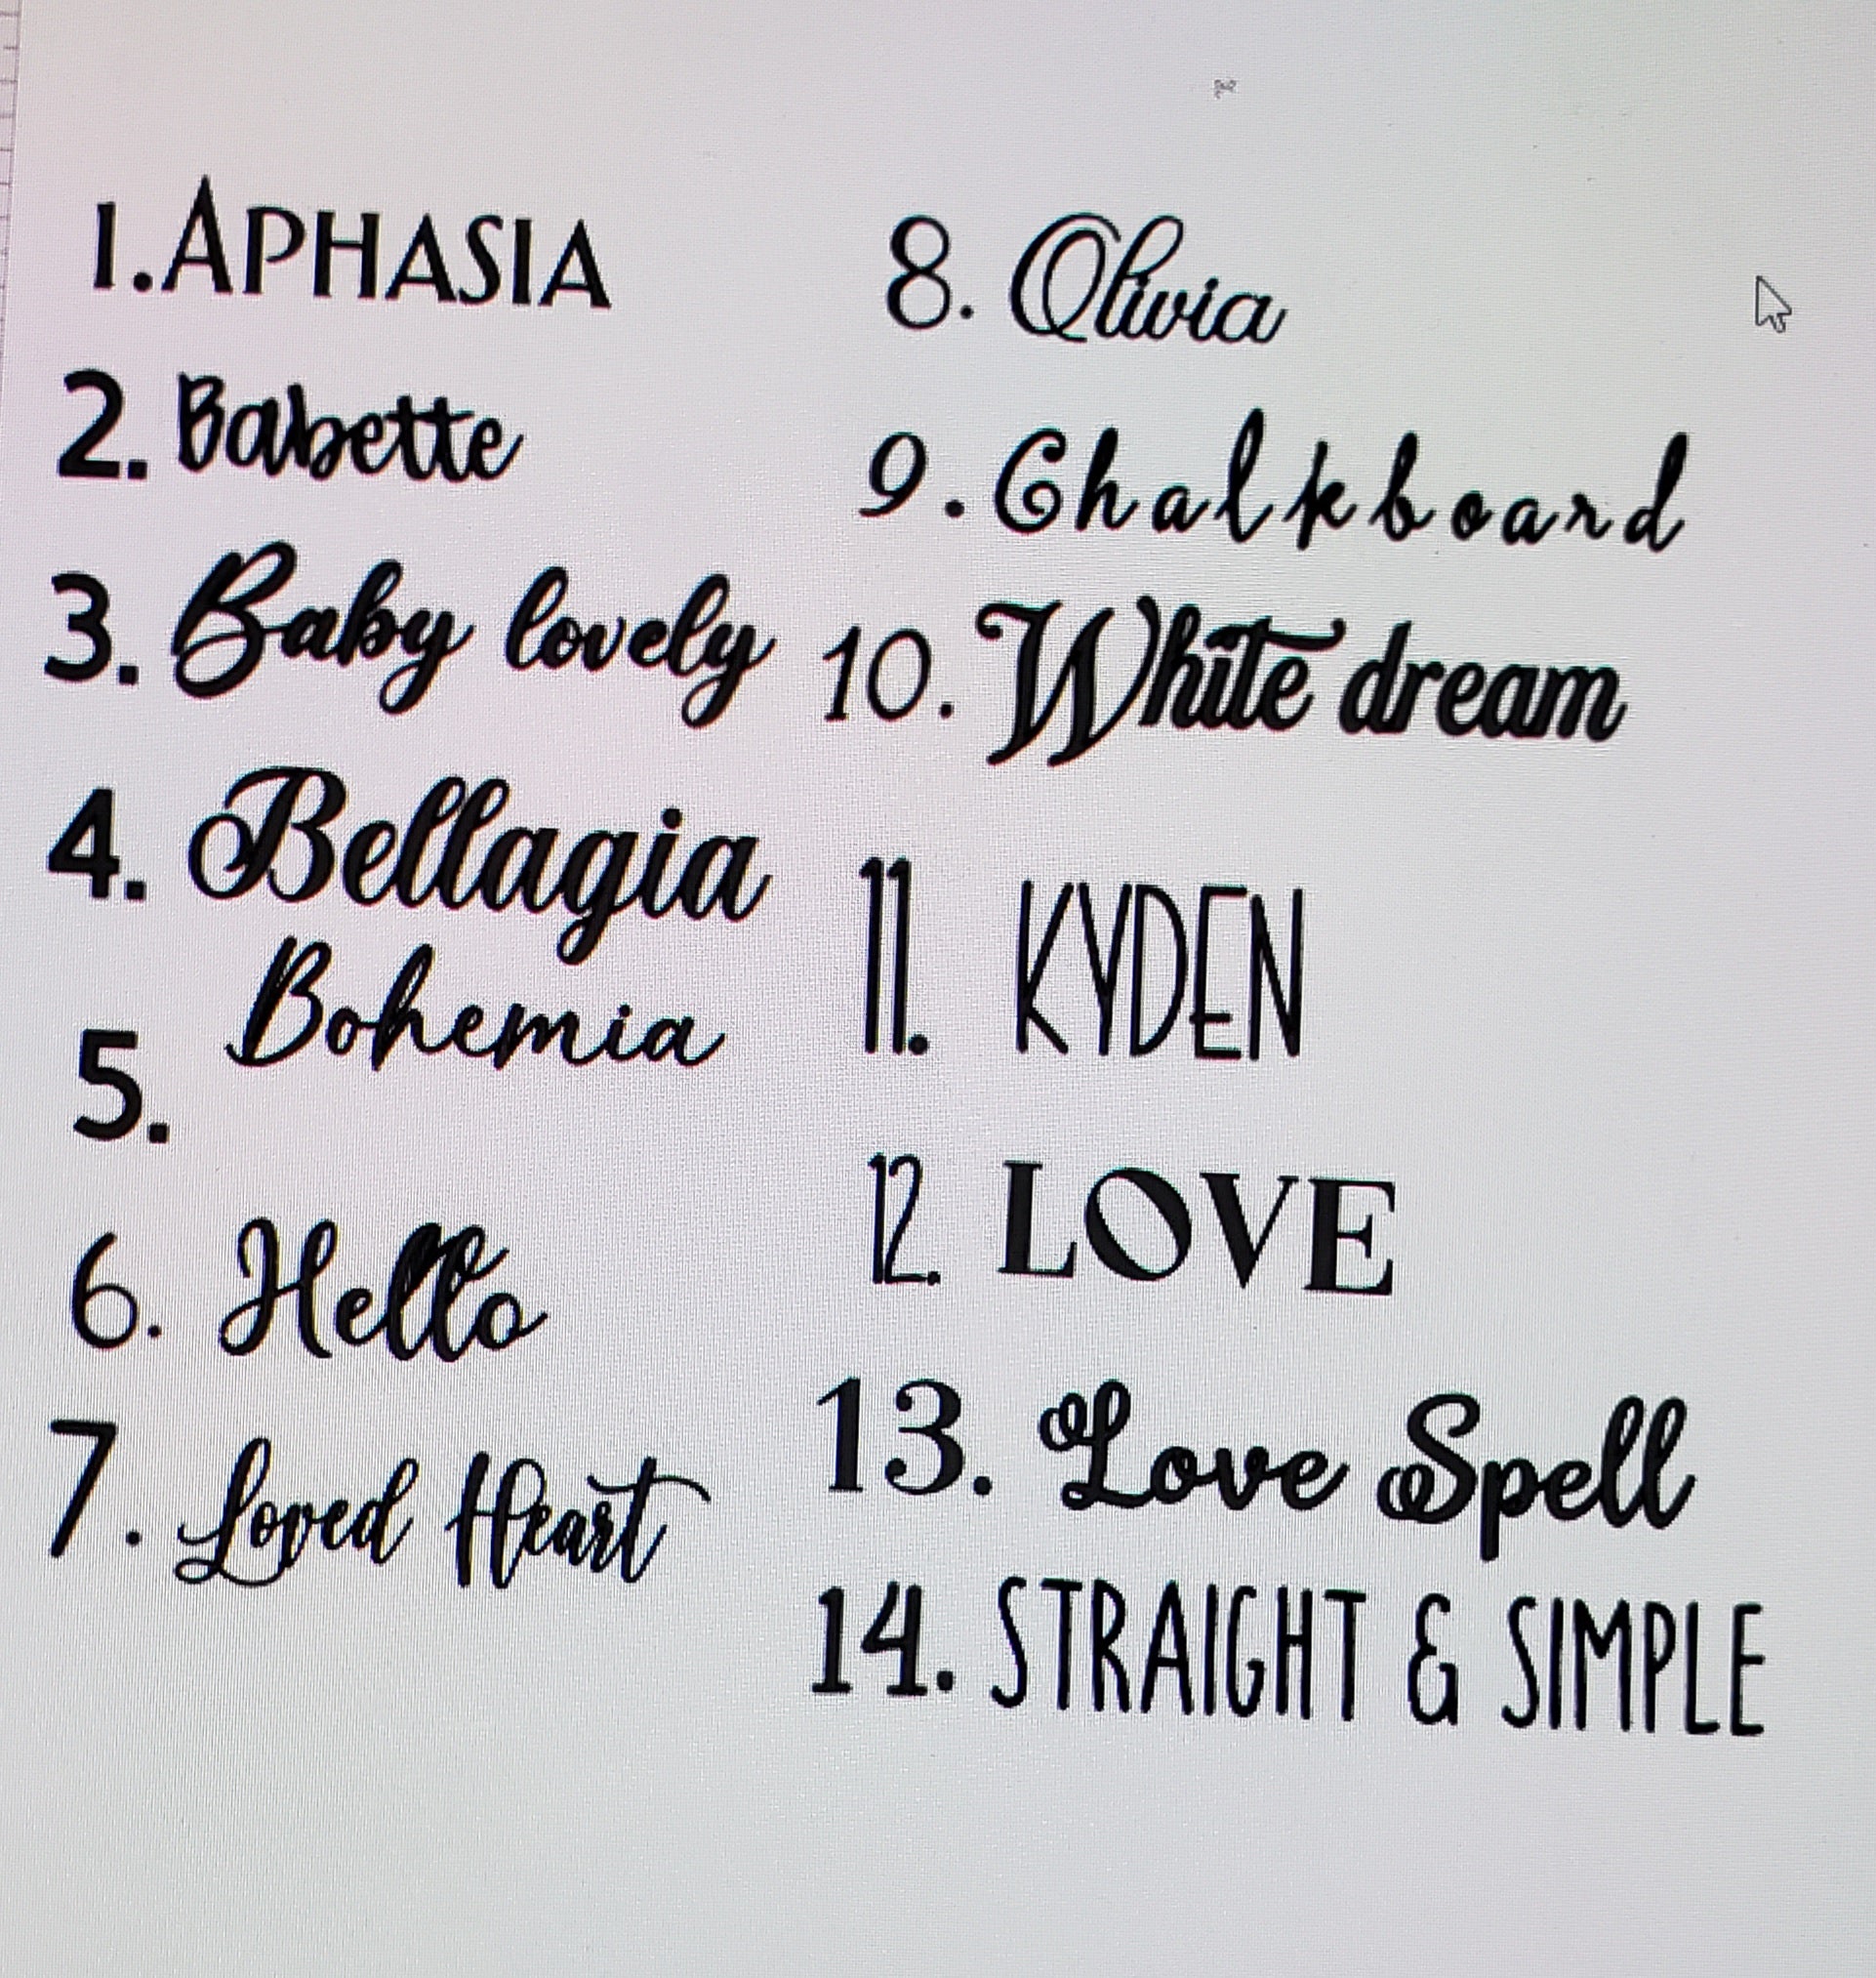 1. APHASIA
2. Babette
3. Baby lovely
4. Bellagia
5. Bohemia
6. Hello
7. Loved Heart
8. Olivia
9. Chalkboard
10. White dream
11. KYDEN
12. LOVE
13. Love Spell
14. STRAIGHT & SIMPLE